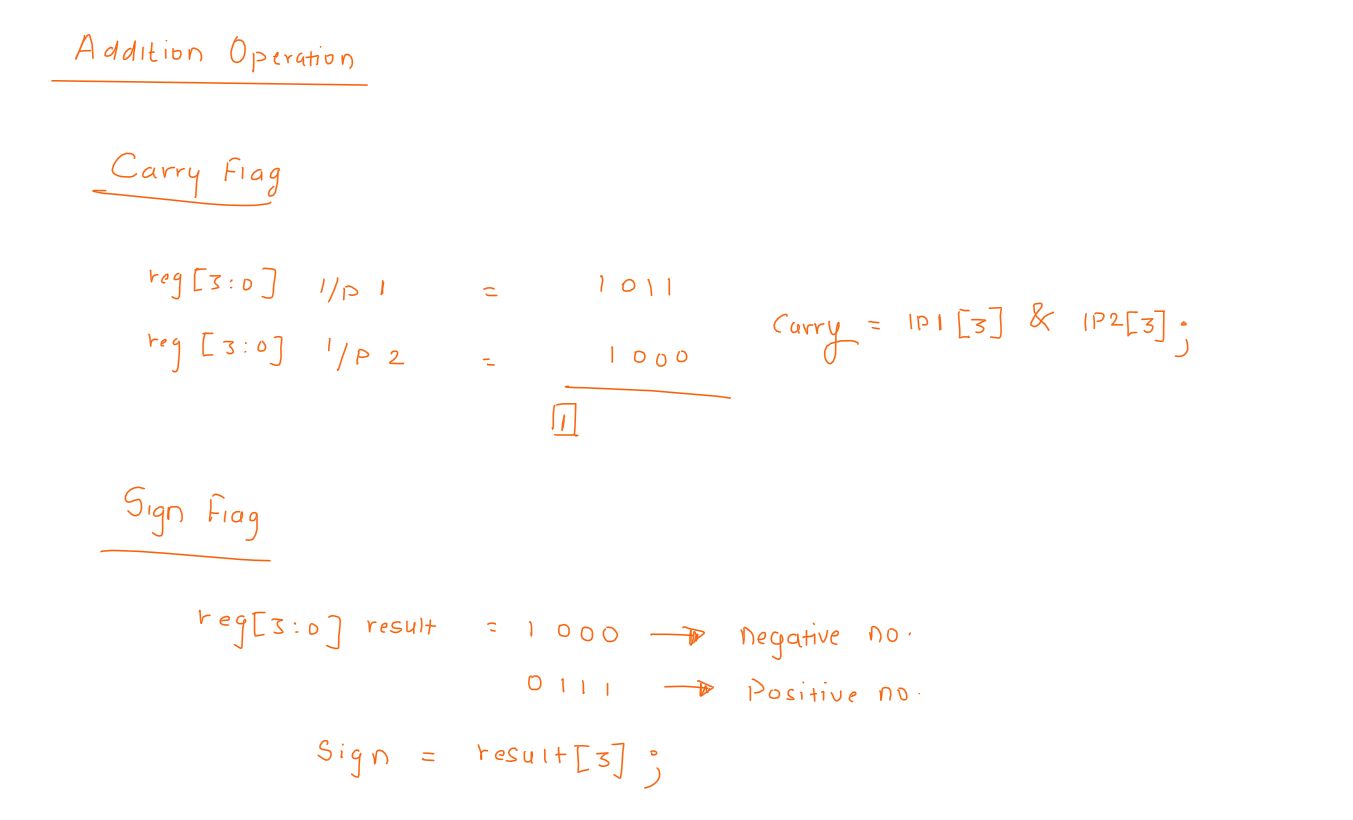 Addition Operation
Carry Flag
reg[3:0] I/P 1 = 1011
reg [3:0] I/P 2 = 1000
1
Carry = IP1[3] & IP2[3];
Sign Flag
reg[3:0] result = 1000 → negative no.
0111 → Positive no.
Sign = result[3];